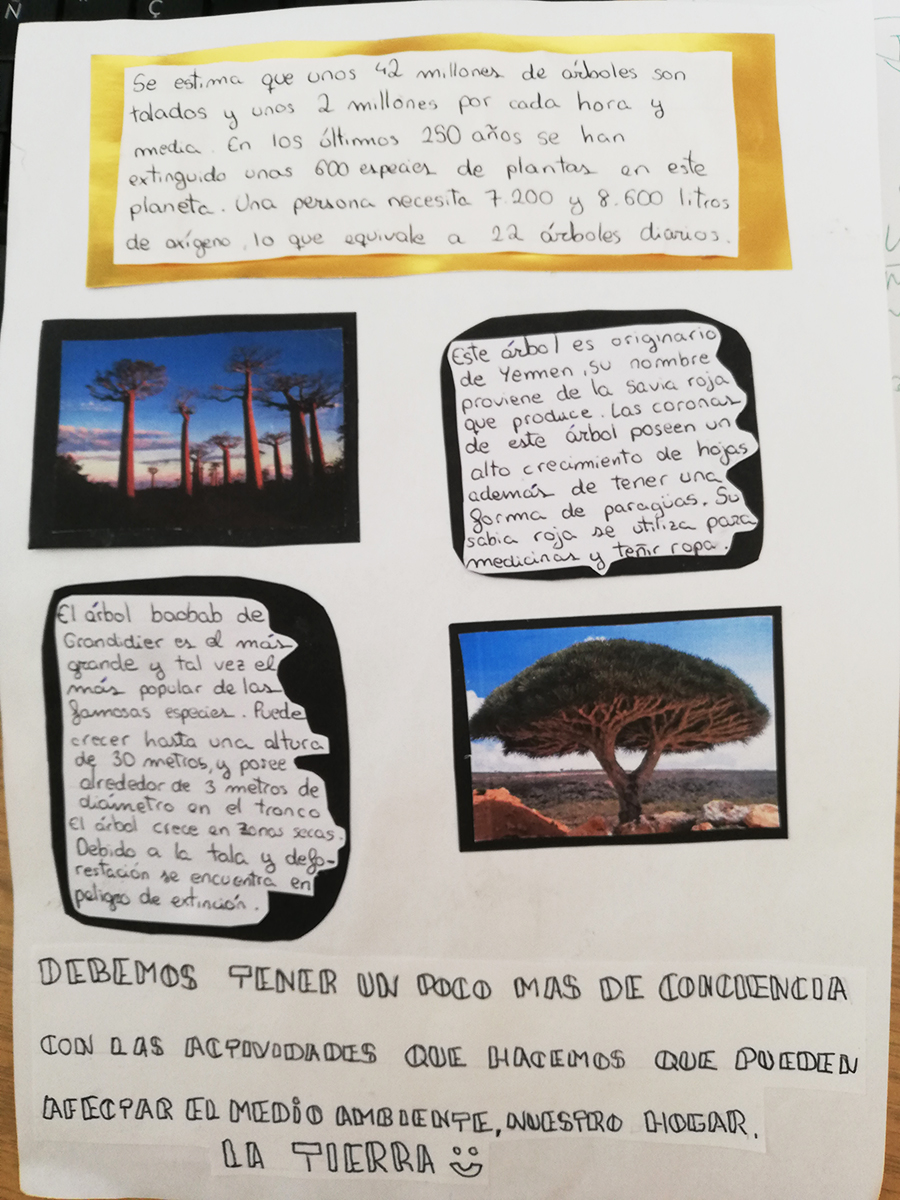 Se estima que unos 42 millones de árboles son
talados y unos 2 millones por cada hora y
media. En los últimmos 250 años se han
extinguido unas 600 especies de plantas en este
planeta. Una persona necesita 7.200 y 8.600 litros
de oxígeno, lo que equivale a 22 árboles diarios.
Este árbol es originario
de Yemmen, su nombre
proviene de la savia roja
que produce. Las coronas
de este árbol poseen un
alto crecimiento de hojas
además de tener una
forma de paragüas. Su
sabia roja se utiliza para
medicinas y teñir ropa.
El árbol baobab de
Grandidier es el más
grande y tal vez el
más popular de las
famosas especies. Puede
crecer hasta una altura
de 30 metros, y posee
alrededor de 3 metros de
diámetro en el tronco
El árbol crece en zonas secas.
Debido a la tala y defo-
restación se encuentra en
peligro de extinción.
DEBEMOS TENER UN POCO MAS DE CONCIENCIA
CON LAS ACTIVIDADES QUE HACEMOS QUE PUEDEN
AFECTAR EL MEDIO AMBIENTE, NUESTRO HOGAR.
LA TIERRA
Ñ Ç